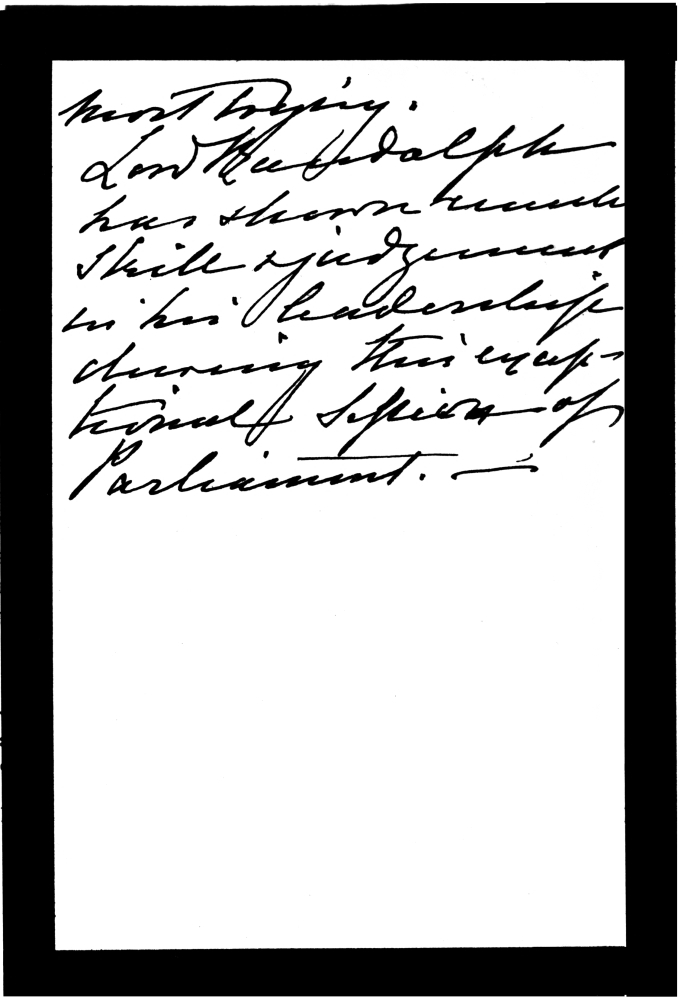 most trying.
Lord Randolph
has shown much
skill & judgement
in his leadership
during this excep-
tional Session of
Parliament. —